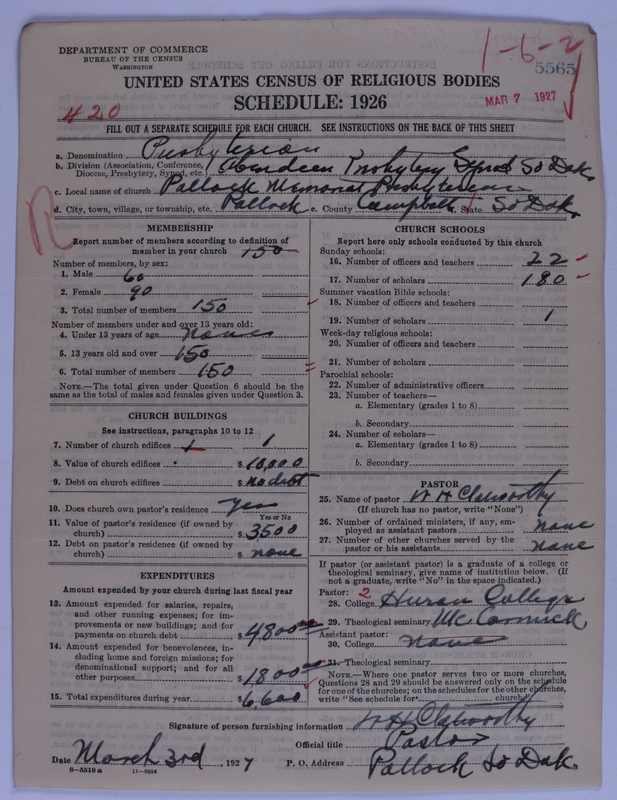 DEPARTMENT OF COMMERCE
BUREAU OF THE CENSUS
WASHINGTON
1-6-2
5565
UNITED STATES CENSUS OF RELIGIOUS BODIES
SCHEDULE: 1926
MAR 7 1927
420
FILL OUT A SEPARATE SCHEDULE FOR EACH CHURCH. SEE INSTRUCTIONS ON THE BACK OF THIS SHEET
a. Denomination Presbyterian
b. Division (Association, Conference, Diocese, Presbytery, Synod, etc.) Aberdeen Presbytery Synod So Dak.
c. Local name of church Pollock Memorial Presbyterian
d. City, town, village, or township, etc. Pollock e. County Campbell f. State So Dak.
R
MEMBERSHIP
Report number of members according to definition of member in your church 150
Number of members by sex:
1. Male 60
2. Female 90
3. Total number of members 150
Number of members under and over 13 years old:
4. Under 13 years of age none
5. 13 years old and over 150
6. Total number of members 150
NOTE.—The total given under Question 6 should be the same as the total of males and females given under Question 3.
CHURCH BUILDINGS
See instructions, paragraphs 10 to 12
7. Number of church edifices 1 1
8. Value of church edifices $ 10,000
9. Debt on church edifices $ no debt
10. Does church own pastor's residence? yes
Yes or No
11. Value of pastor's residence (if owned by church) $ 3500
12. Debt on pastor's residence (if owned by church) $ none
EXPENDITURES
Amount expended by your church during last fiscal year
13. Amount expended for salaries, repairs, and other running expenses; for improvements or new buildings; and for payments on church debt $ 4800
14. Amount expended for benevolences, including home and foreign missions; for denominational support; and for all other purposes $ 1800
15. Total expenditures during year $ 6600
CHURCH SCHOOLS
Report here only schools conducted by this church
Sunday schools:
16. Number of officers and teachers 22
17. Number of scholars 180
Summer vacation Bible schools:
18. Number of officers and teachers
19. Number of scholars
Week-day religious schools:
20. Number of officers and teachers
21. Number of scholars
Parochial schools:
22. Number of administrative officers
23. Number of teachers—
a. Elementary (grades 1 to 8)
b. Secondary
24. Number of scholars—
a. Elementary (grades 1 to 8)
b. Secondary
PASTOR
25. Name of pastor W H Clatworthy
(If church has no pastor, write "None")
26. Number of ordained ministers, if any, employed as assistant pastors none
27. Number of other churches served by the pastor or his assistants none
If pastor (or assistant pastor) is a graduate of a college or theological seminary, give name of institution below. (If not a graduate, write "No" in the space indicated.)
Pastor: 2
28. College Huron College
29. Theological seminary McCormick
Assistant pastor:
30. College none
31. Theological seminary
NOTE.—Where one pastor serves two or more churches, Questions 28 and 29 should be answered only on the schedule for one of the churches; on the schedules for the other churches, write "See schedule for church."
Signature of person furnishing information W H Clatworthy
Official title Pastor
Date March 3rd, 1927 P. O. Address Pollock So Dak
8—5518a 11—9054